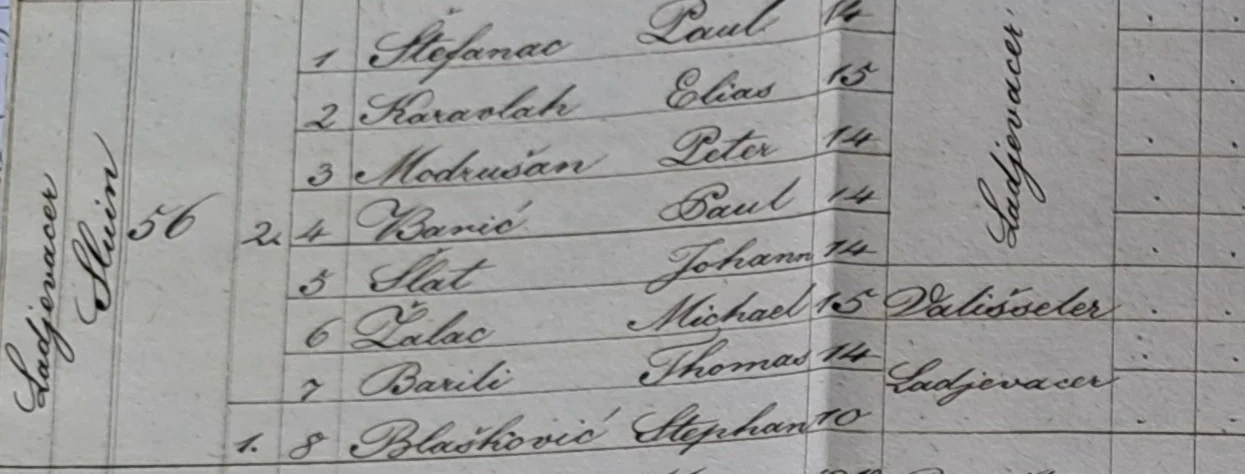 Ladjevacer
Sluin
56
2.
1 Štefanac Paul 14
2 Karavlah Elias 15
3 Modrušan Peter 14
4 Banić Paul 14
5 Slat Johann 14
Ladjevacer
6 Žalac Michael 15 Vališseler
7 Barili Thomas 14 Ladjevacer
1. 8 Blašković Stephan 10